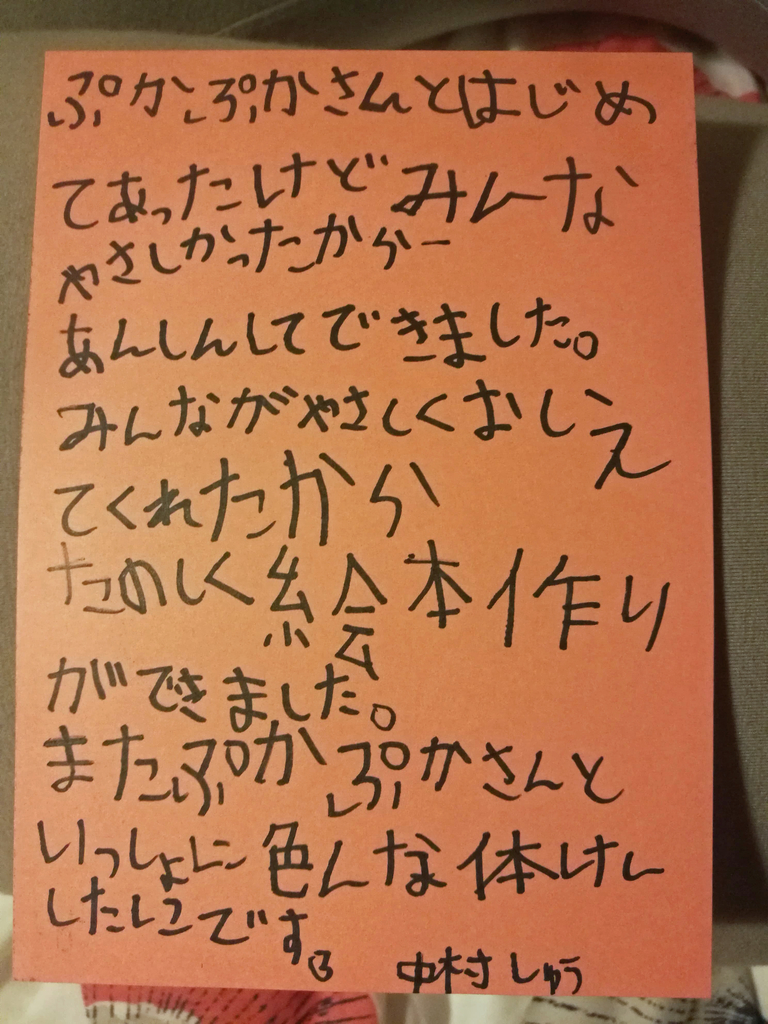 ぷかぷかさんとはじめ
てあったけどみんな
やさしかったから
あんしんしてできました。
みんながやさしくおしえ
てくれたから
たのしく絵本作り
ができました。
またぷかぷかさんと
いっしょに色んな体けん
したいです。
中村しゅう